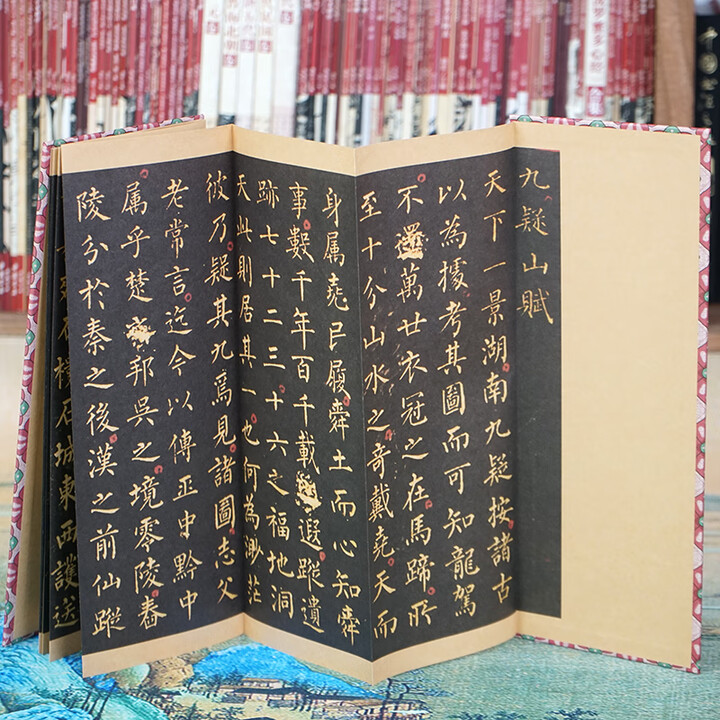 九疑山賦
天下一景湖南九疑按諸古
以為據考其圖而可知龍駕
不還萬廿衣冠之在馬蹄所
至十分山水之奇戴堯天而
身属堯民履舜土而心知舜
事數千年百千載遐蹤遺
跡七十二三十六之福地洞
天此則居其一也何為渺茫
彼乃疑其九焉見諸圖志父
老常言迄今以傳正中黔中
属乎楚邦吳之境零陵舂
陵分於秦之後漢之前仙蹤
石樓石城東西護送